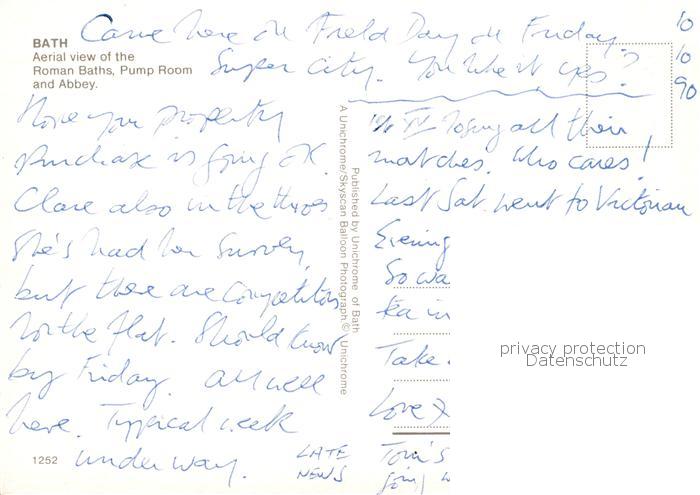 BATH
Aerial view of the
Roman Baths, Pump Room
and Abbey.
Came here on Field Day on Friday.
Super city. You like it yes?
10
10
90
Hope your property
purchase is going OK.
Clare also in the throes.
She's had her survey,
but there are competitors
for the flat. Should know
by Friday. All well
here. Typical week
under way.
1252
LATE
NEWS
A Unichrome/Skyscan Balloon Photograph © Unichrome
Published by Unichrome of Bath
losing all their
matches. Who cares!
Last Sat. went to Victorian
Evening
So wa
tea in
Take
Love
Tom's
going w
privacy protection
Datenschutz